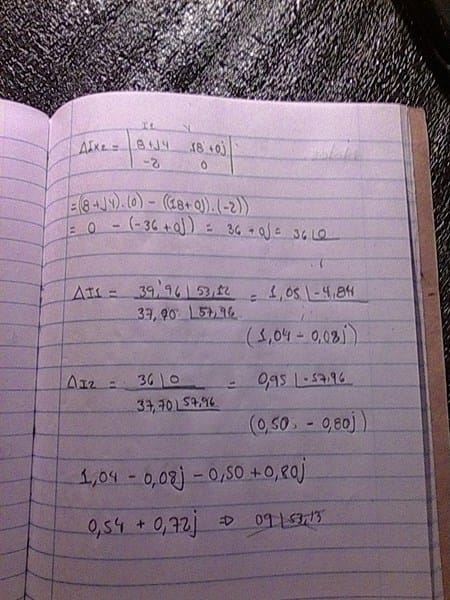 I2 V
ΔIx2 = | 8+j4 18+0j |
| -2 0 |
= (8+j4).(0) - ((18+0j).(-2))
= 0 - (-36+0j) = 36+0j = 36∠0
ΔI1 = 39,96∠53,12 / 37,70∠57,96 = 1,05∠-4,84
(1,04 - 0,08j)
ΔI2 = 36∠0 / 37,70∠57,96 = 0,95∠-57,96
(0,50 - 0,80j)
1,04 - 0,08j - 0,50 + 0,80j
0,54 + 0,72j ⇒ 09∠53,13